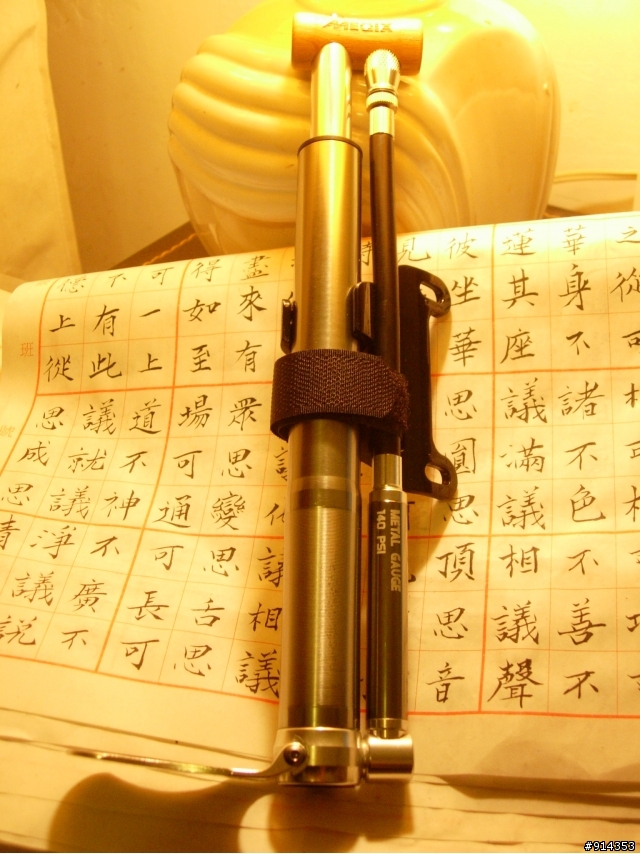 德不可得盡 見彼蓮華之
上有一如來 坐其身從
從此上至有 華座不可
思議道場眾 思議諸相
成就不可思議 圓滿不可
思議神通變化 思議色相
清淨不可思議 頂相不可
議廣長舌相 思議善巧
說不可思議 音聲不
METAL GAUGE
140 PSI
#914353